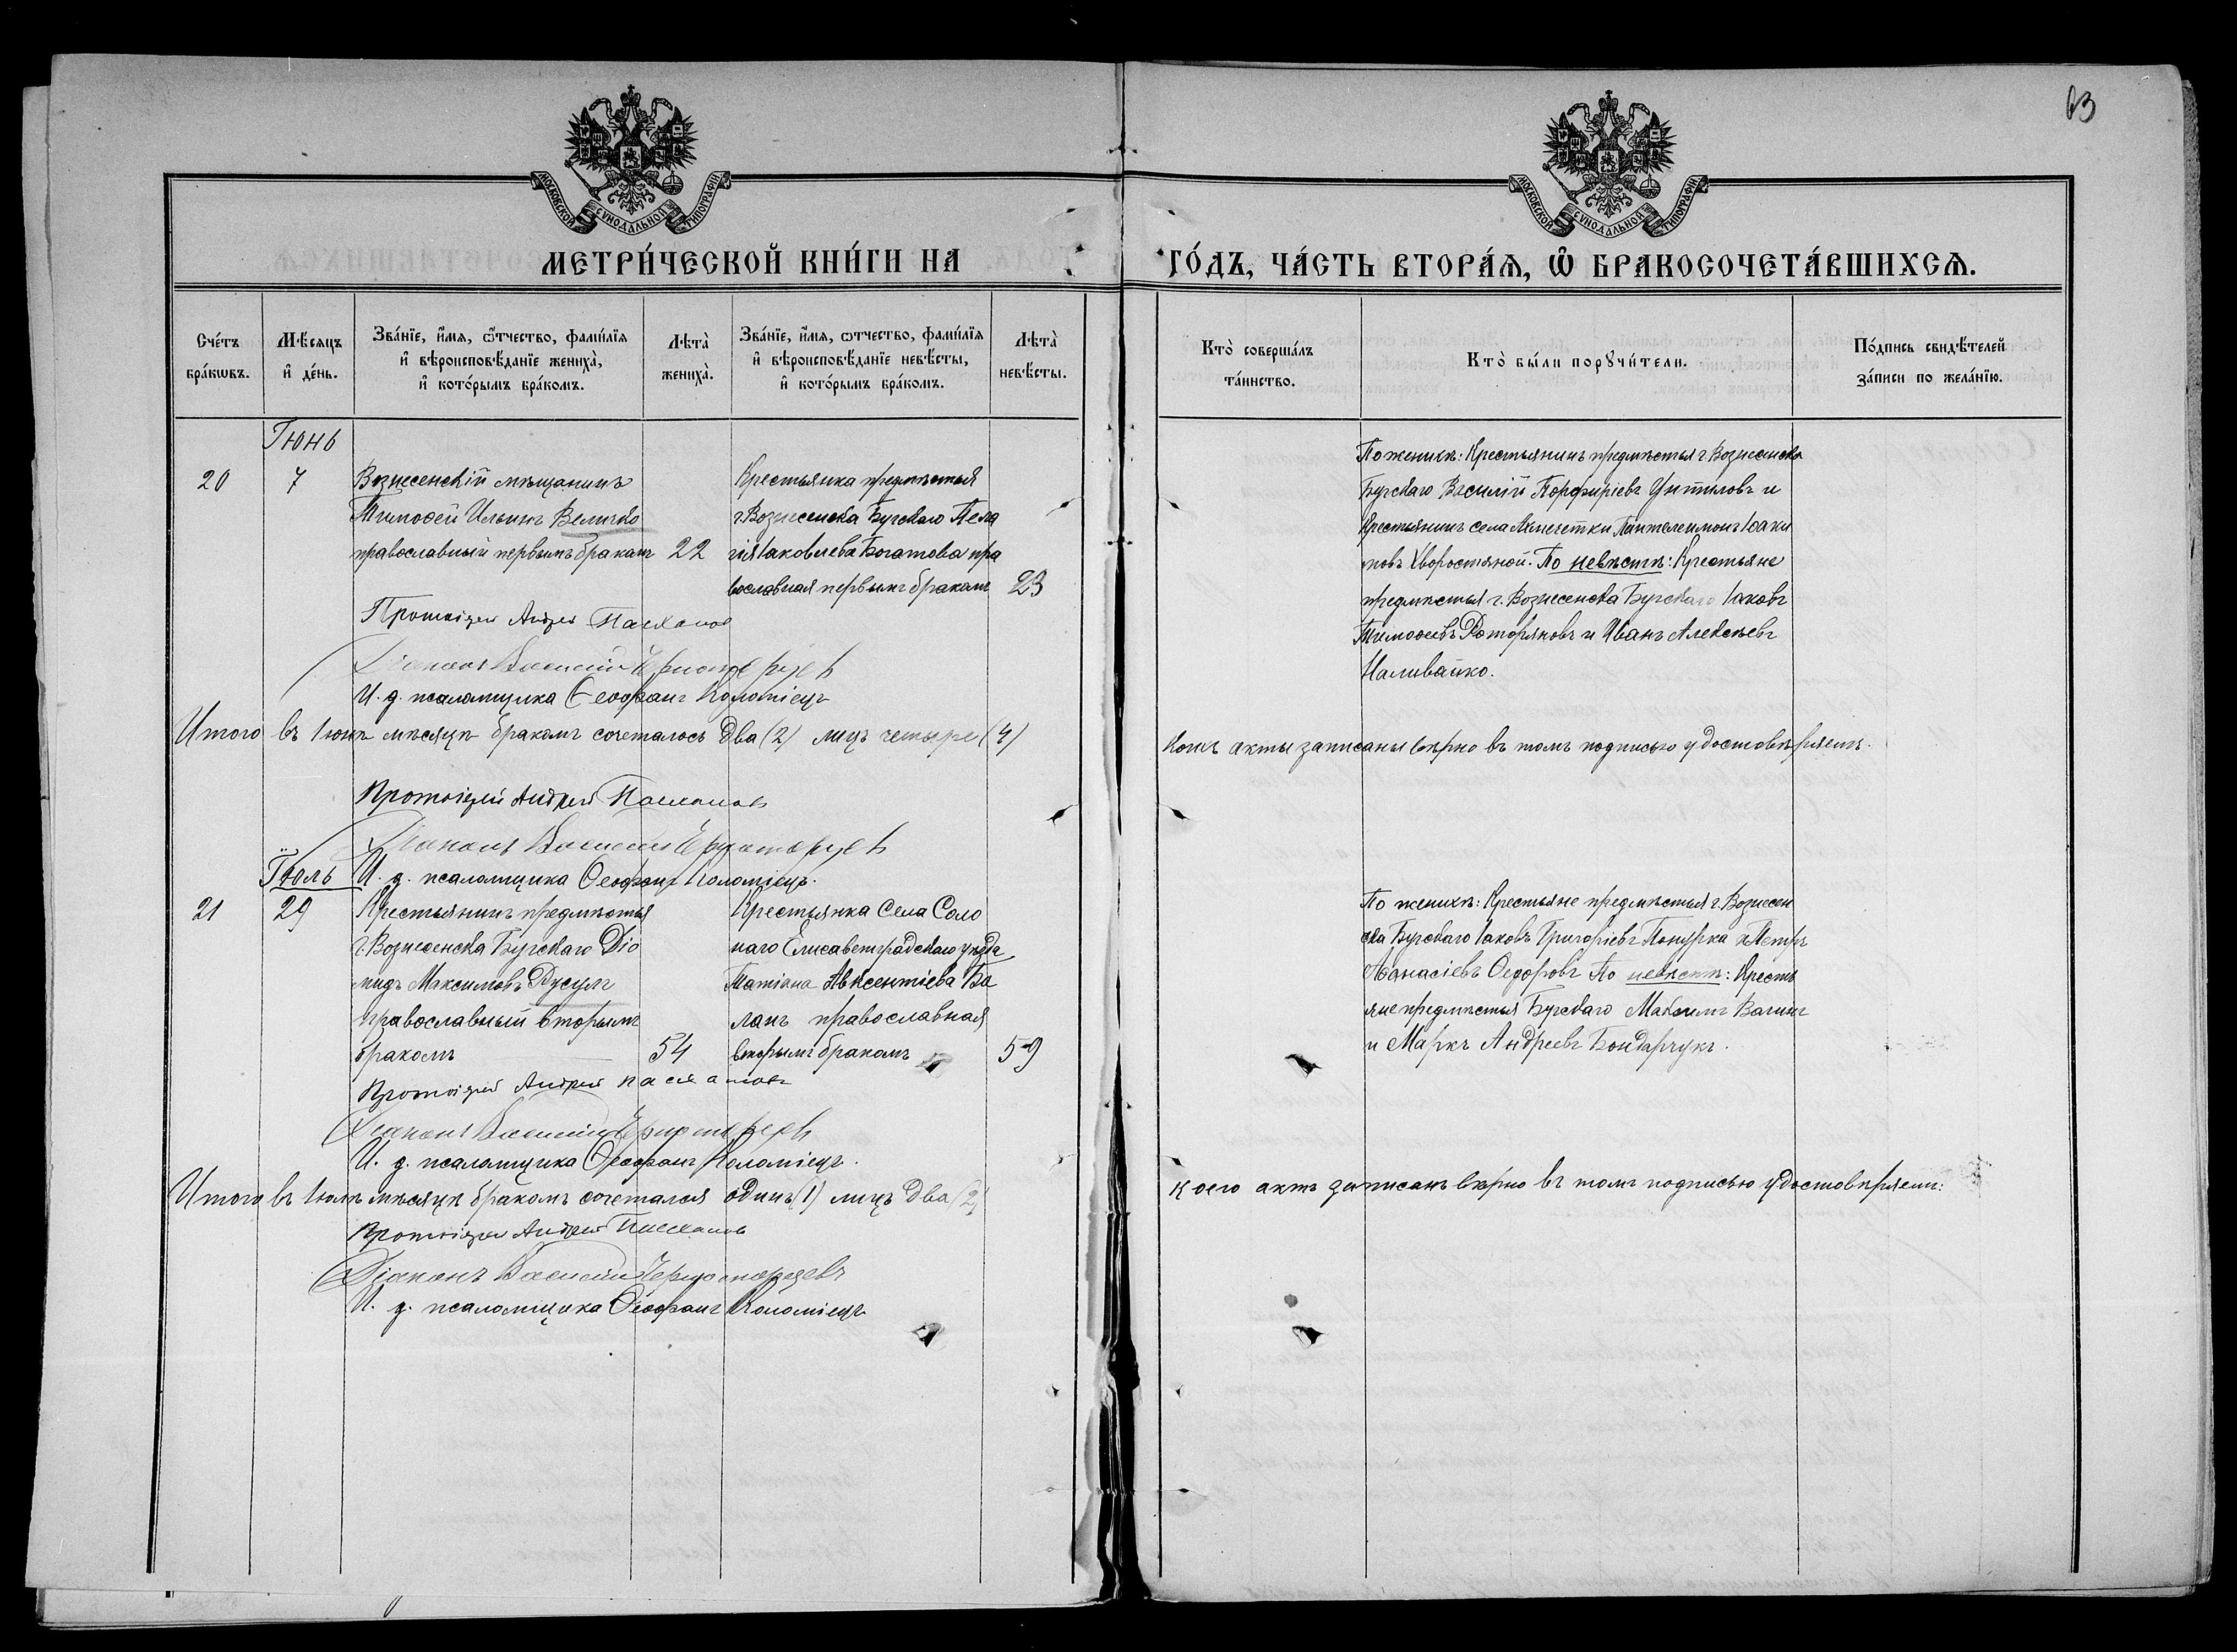 63
МОСКОВСКОЙ СѴНОДАЛЬНОЙ ТИПОГРАФІИ
МОСКОВСКОЙ СѴНОДАЛЬНОЙ ТИПОГРАФІИ
МЕТРИ́ЧЕСКОЙ КНИ́ГИ НА
ГО́ДЪ, ЧА́СТЬ ВТОРА́Я, Ѽ БРАКОСОЧЕТА́ВШИХСѦ.
Сче́тъ
бра́кωвъ.
Мѣ́сяцъ
и҆ де́нь.
Зва́нїе, и҆́мя, ѻ҆́тчество, фами́лїя
и҆ вѣроисповѣ́данїе жениха̀,
и҆ кото́рымъ бра́комъ.
Лѣта̀
жениха̀.
Зва́нїе, и҆́мя, ѻтчество, фами́лїя
и҆ вѣроисповѣ́данїе невѣ́сты,
и҆ кото́рымъ бра́комъ.
Лѣта̀
невѣ́сты.
Кто̀ соверша́лъ
та́инство.
Кто̀ бы́ли порꙋчи́тели.
По́дпись свидѣ́телей
за́писи по жела́нїю.
Іюнь
20
7
Вознесенскій мѣщанинъ
Тимоѳей Ильинъ Величко
православный первымъ бракомъ
22
Крестьянка предмѣстья
г. Вознесенска Бугскаго Пела
гія Іаковлева Богатова пра
вославная первымъ бракомъ
23
По женихѣ: Крестьянинъ предмѣстья г. Вознесенска
Бугскаго Василій Порфиріевъ и
крестьянинъ села Акмечетки Пантелеимонъ Іаки
мовъ Хворостяной. По невѣстѣ: Крестьяне
предмѣстья г. Вознесенска Бугскаго Іаковъ
Тимоѳеевъ и Иванъ Алексѣевъ
Наливайко.
Протоіерей Андрей
Діаконъ Василій
И. д. псаломщика Ѳеофанъ Коломіецъ
Итого въ Іюнѣ мѣсяцѣ бракомъ сочеталось два (2) лицъ четыре (4)
Коихъ акты записаны вѣрно въ томъ подписью удостовѣряемъ.
Протоіерей Андрей
Діаконъ Василій
Іюль
И. д. псаломщика Ѳеофанъ Коломіецъ.
21
29
Крестьянинъ предмѣстья
г. Вознесенска Бугскаго Діо
мидъ Максимовъ
православный вторымъ
бракомъ
54
Крестьянка Села Соло
наго Елисаветградскаго уѣзда
Татіана Авксентіева Ба
ланъ православная
вторымъ бракомъ
59
По женихѣ: Крестьяне предмѣстья г. Вознесен
ска Бугскаго Іаковъ Григоріевъ и Петръ
Аѳанасіевъ Ѳедоровъ По невѣстѣ: Кресть
яне предмѣстья Бугскаго Максимъ
и Маркъ Андреевъ Бондарчукъ.
Протоіерей Андрей
Діаконъ Василій
И. д. псаломщика Ѳеофанъ Коломіецъ.
Итого въ Іюлѣ мѣсяцѣ бракомъ сочетался одинъ (1) лицъ два (2)
Коего актъ записанъ вѣрно въ томъ подписью удостовѣряемъ:
Протоіерей Андрей
Діаконъ Василій
И. д. псаломщика Ѳеофанъ Коломіецъ